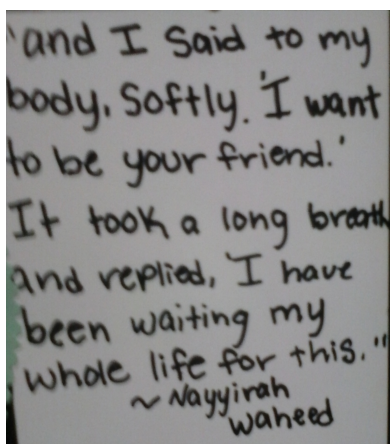 'and I said to my
body. Softly. 'I want
to be your friend.'
It took a long breath
and replied, 'I have
been waiting my
whole life for this."
~ Nayyirah
waheed